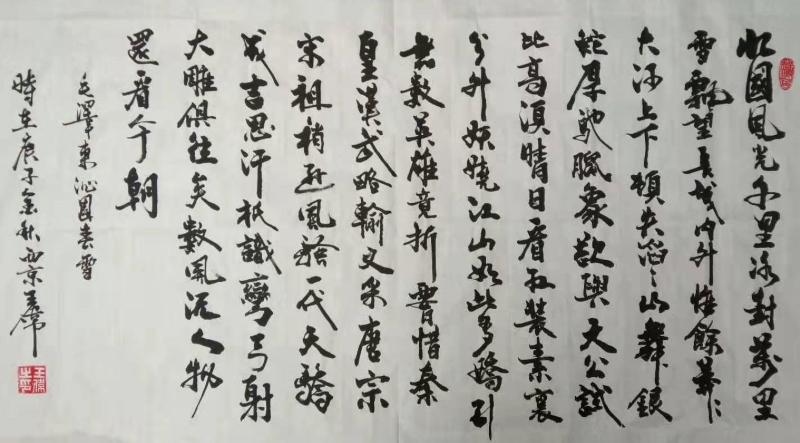 北國風光千里冰封萬里
雪飄望長城內外惟餘莽々
大河上下頓失滔々山舞銀
蛇原馳臘象欲與天公試
比高須晴日看紅裝素裹
分外妖嬈江山如此多嬌引
無數英雄競折腰惜秦
皇漢武略輸文采唐宗
宋祖稍遜風騷一代天驕
成吉思汗祇識彎弓射
大雕俱往矣數風流人物
還看今朝
毛澤東沁園春雪
時在庚子金秋西京王席